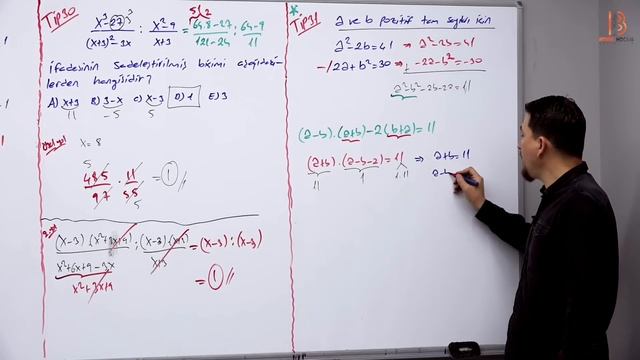 TİP30
x³-27 / (x+3)²-3x : x²-9 / x+3 = 64.8-27 / 121-24 : 64-9 / 11
ifadesinin sadeleştirilmiş biçimi aşağıdaki-
lerden hangisidir?
A) x+3 B) 3-x C) x-3 D) 1 E) 3
11 -5 5
x=8
= 1 //
(x-3).(x²+3x+9) / x²+6x+9-3x : (x-3).(x+3) / x+3 = (x-3):(x-3)
x²+3x+9
= 1 //
* TİP31
a ve b pozitif tam sayıları için
a²-2b=41 ⇒ a²-2b=41
-/2a+b²=30 ⇒ + -2a-b²=-30
a²-b²-2b-2a=11
(a-b).(a+b)-2(b+a)=11
(a+b).(a-b-2)=11 ⇒ a+b=11
11 1 1.11 a-b
B
HOCAM